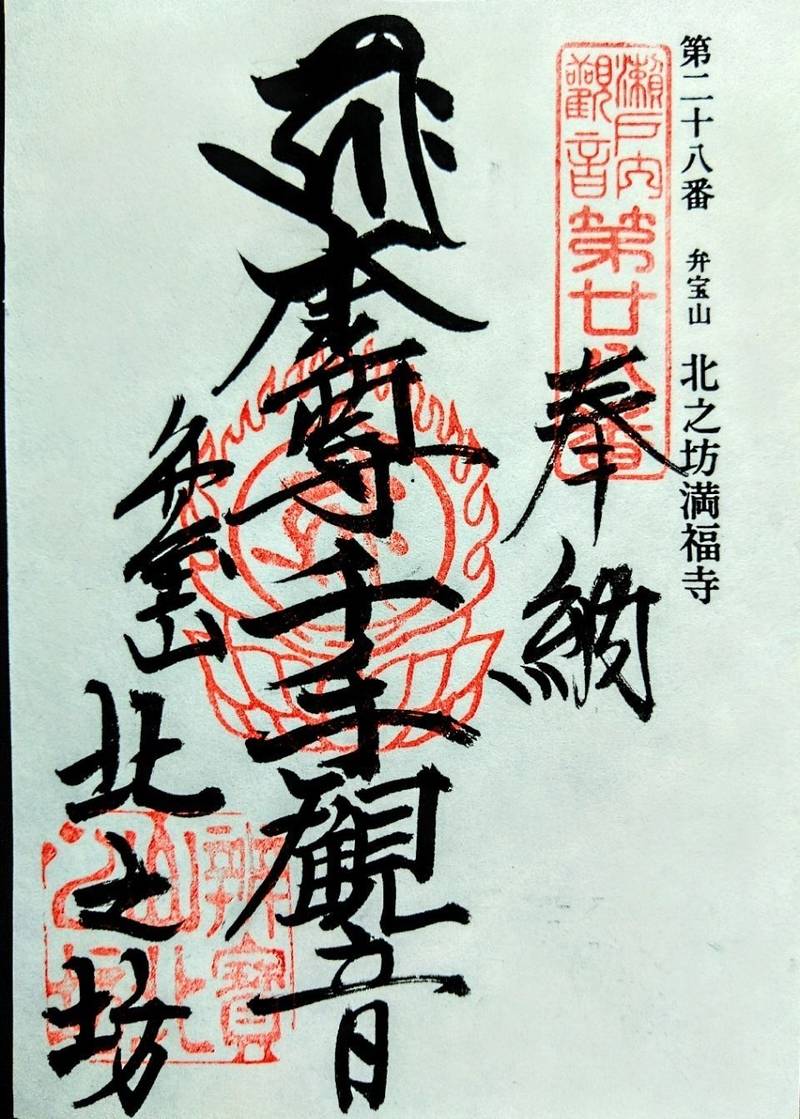 第二十八番 弁宝山 北之坊満福寺
瀬戸内
觀音
第廿八番
奉納
本尊千手観音
弁宝山
北之坊
辨寳
山北
之坊